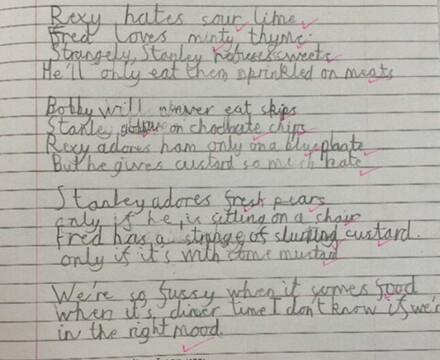 Rexy hates sour lime
Fred loves minty thyme.
Strangely, Stanley refuses sweets
He'll only eat them sprinkled on meats
Bobby will never eat skips
Stanley on choclate chips
Rexy adores ham only on a blue plate
But he gives custard so much hate
Stanley adores fresh pears
only if he is sitting on a chair
Fred has a strange of slurting custard.
only if it's with some mustard
We're so fussy when it comes food
when it's diner time I don't know if we'r
in the right mood.